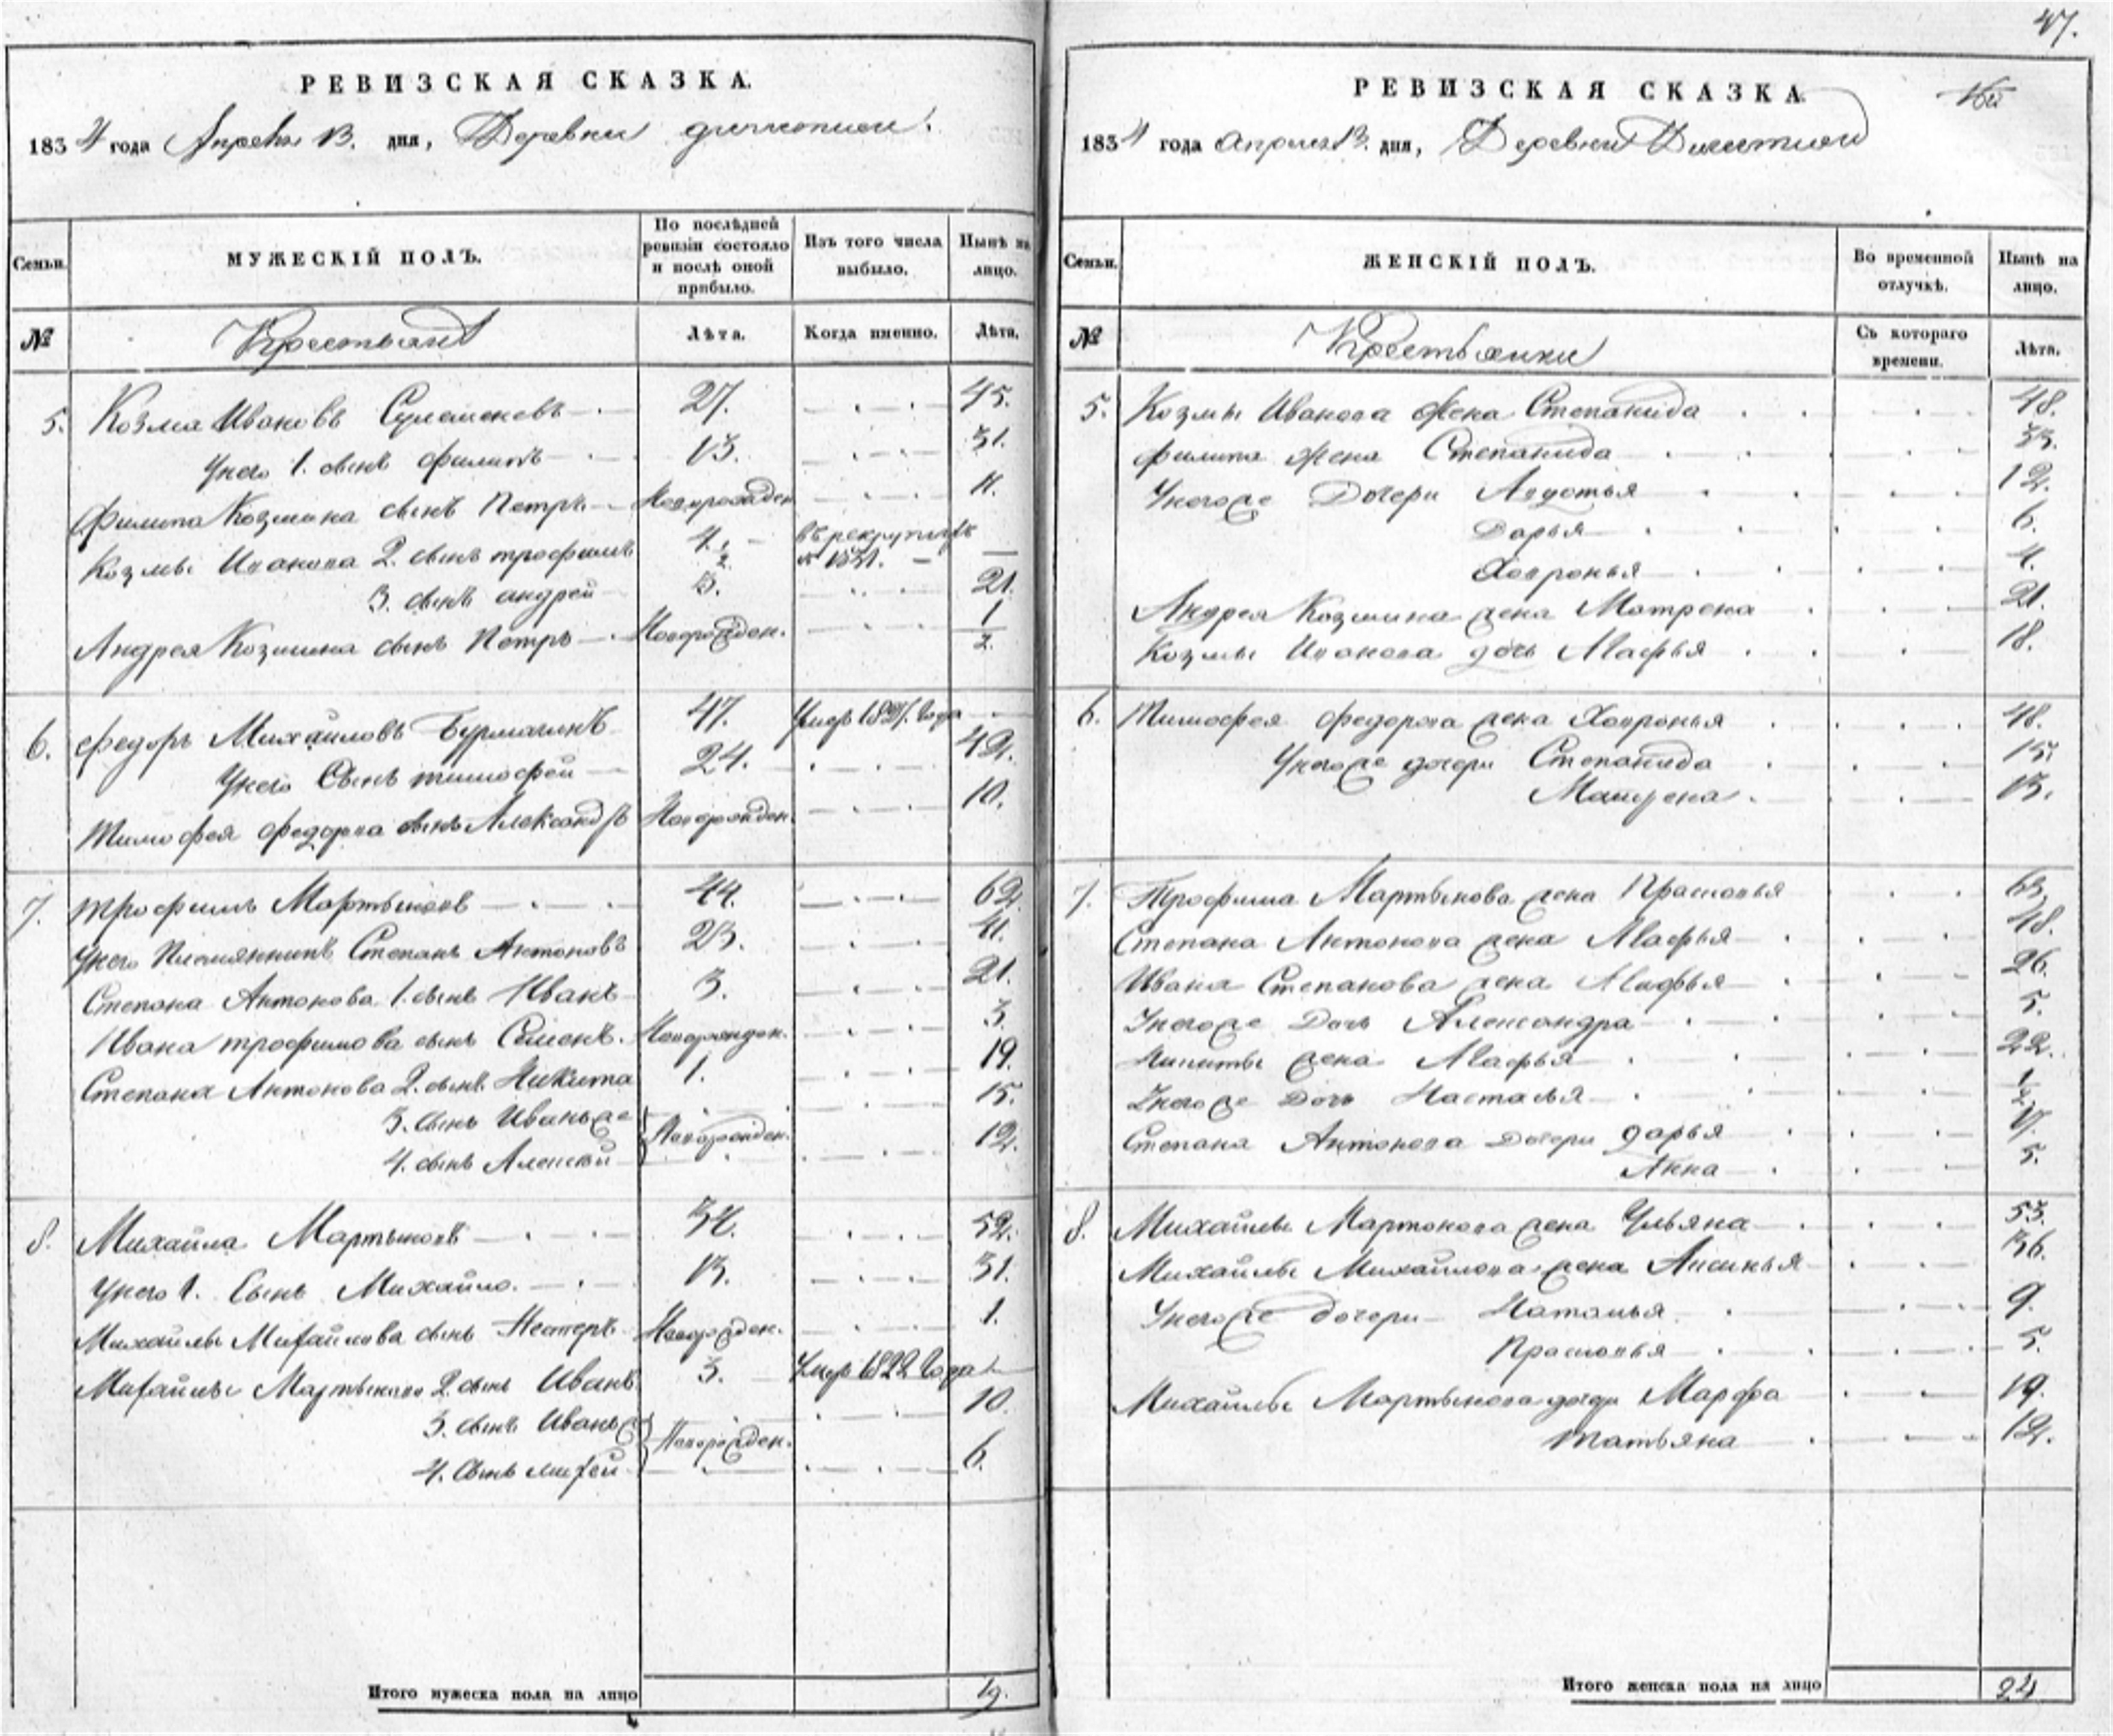 47.
РЕВИЗСКАЯ СКАЗКА.
1834 года Апреля 13. дня, Деревни
Семьи.
МУЖЕСКІЙ ПОЛЪ.
По послѣдней ревизіи состояло и послѣ оной прибыло.
Изъ того числа выбыло.
Нынѣ на лицо.
№
Крестьянѣ
Лѣта.
Когда именно.
Лѣта.
5. Козма Ивановъ 27. 45.
Унего 1. сынъ Филипъ 13. 31.
Филипа Козмина сынъ Петръ Новорожден 11.
Козмы Иванова 2. сынъ трофимъ 4 1/2 в рекрутахъ
3. сынъ андрей 3. 21.
Андрея Козмина сынъ Петръ Новорожден. 1/2
6. Федоръ Михайловъ Бурмагинъ 47. Умеръ года
Унего Сынъ тимофей 24. 42.
Тимофея Федорова сынъ Александръ Новорожден. 10.
7. трофимъ Мартыновъ 44. 62.
Унего Племянникъ Степанъ Антоновъ 23. 41.
Степана Антонова 1. сынъ Иванъ 3. 21.
Ивана трофимова сынъ Семенъ Новорожден. 3.
Степана Антонова 2. сынъ Никита 1. 19.
3. сынъ Иванъже 15.
4. сынъ Алексей Новорожден. 12.
8. Михайла Мартыновъ 34. 52.
Унего 1. Сынъ Михайло. 13. 31.
Михайлы Михайлова сынъ Нестеръ Новорожден. 1.
Михайлы Мартынова 2. сынъ Иванъ 3. Умеръ 1822 года
3. сынъ Иванъже 10.
4. сынъ Новорожден. 6.
Итого мужеска пола на лицо 19.
РЕВИЗСКАЯ СКАЗКА
1834 года апреля 13. дня, Деревни
Семьи.
ЖЕНСКІЙ ПОЛЪ.
Во временной отлучкѣ.
Нынѣ на лицо.
№
Крестьянки
Съ котораго времени.
Лѣта.
5. Козмы Иванова жена Степанида 48.
Филипа жена Степанида 33.
Унегоже Дочери Авдотья 12.
Дарья 6.
Хавронья 4.
Андрея Козмина жена Матрена 21.
Козмы Иванова дочь Мафья 18.
6. Тимофея Федорова жена Хавронья 48.
Унегоже дочери Степанида 15.
Матрена 13.
7. Трофима Мартынова жена Прасковья 63.
Степана Антонова жена Мафья 48.
Ивана Степанова жена Мафья 26.
Унегоже Дочь Александра 5.
Никиты жена Мафья 22.
Унегоже Дочь Насталья 1/2
Степана Антонова Дочери дарья 17.
Анна 5.
8. Михайлы Мартынова жена Ульяна 53.
Михайлы Михайлова жена Аксинья 36.
Унегоже дочери Наталья 9.
Прасковья 5.
Михайлы Мартынова дочери Марфа 19.
татьяна 12.
Итого женска пола на лицо 24